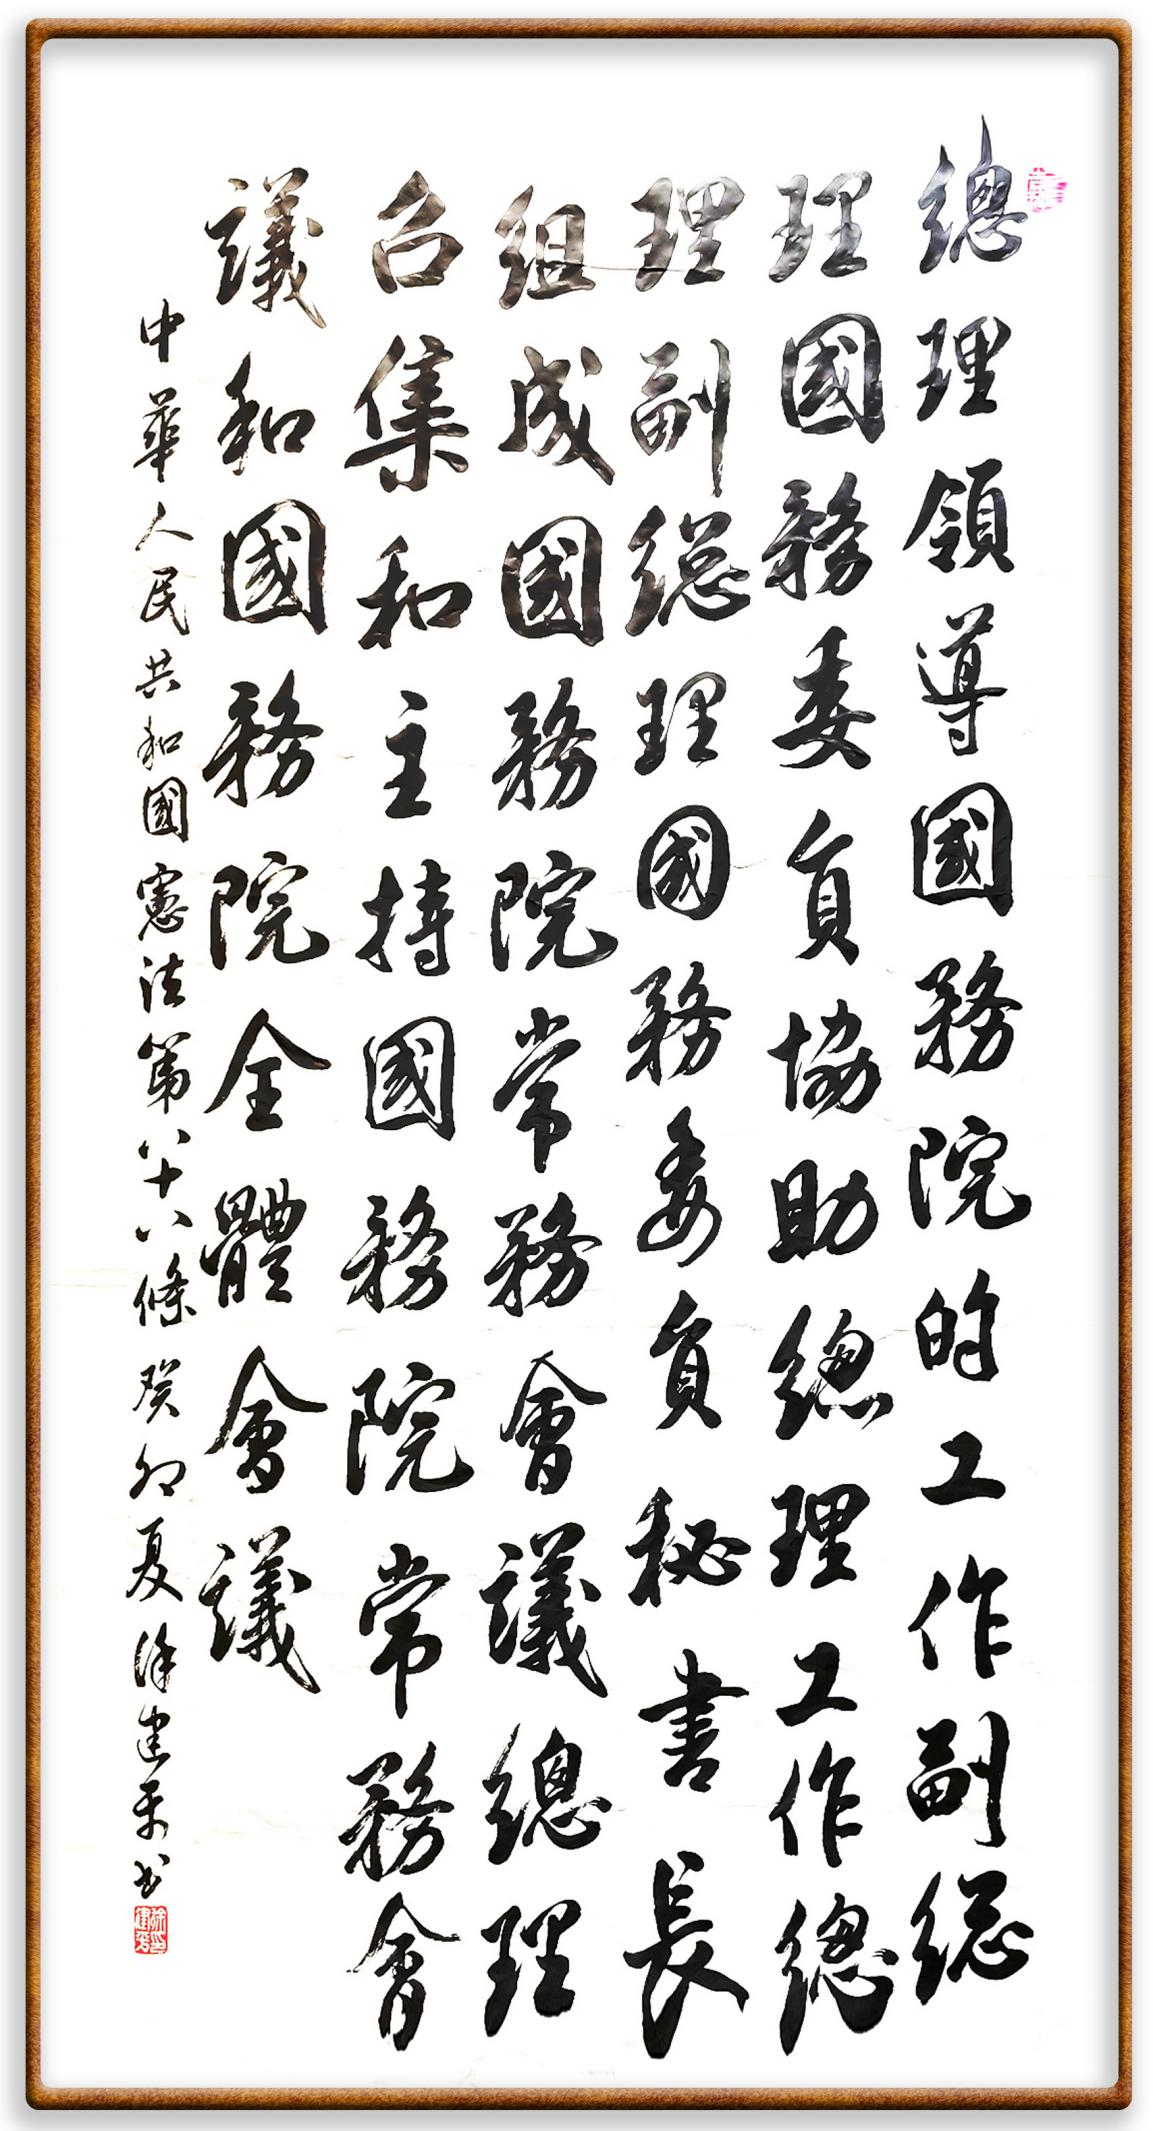 總理領導國務院的工作副総
理國務委員協助總理工作總
理副総理國務委員秘書長
組成國務院常務會議總理
召集和主持國務院常務會
議和國務院全體會議
中華人民共和國憲法第八十八條 癸卯夏 徐建平書
徐建平印